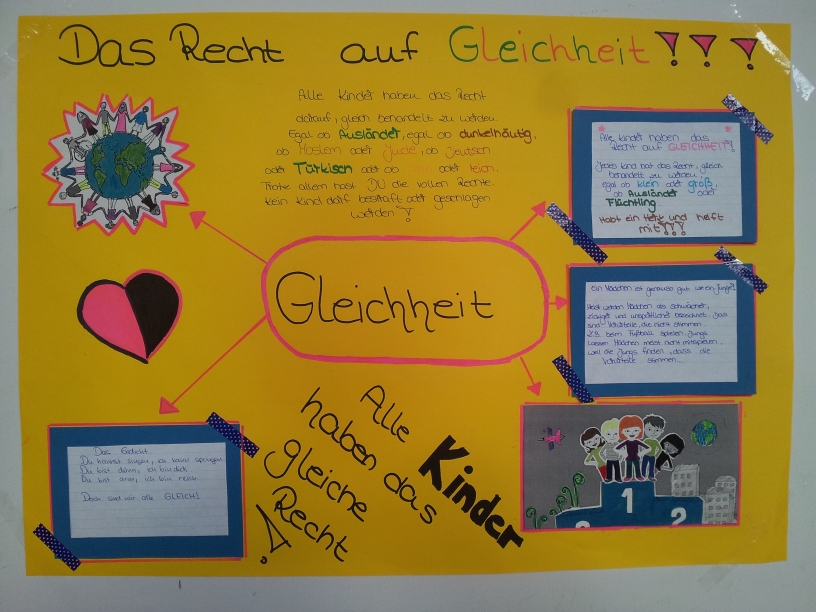 Das Recht auf Gleichheit!!!
Alle Kinder haben das Recht
darauf, gleich behandelt zu werden.
Egal ob Ausländer, egal ob dunkelhäutig,
ob Moslem oder Jude, ob Deutsch
oder Türkisch oder ob oder reich.
Trotz allem hast DU die vollen Rechte.
Kein Kind darf bestraft oder geschlagen
werden!
Alle Kinder haben das
Recht auf GLEICHHEIT!
Jedes Kind hat das Recht, gleich
behandelt zu werden,
egal ob klein oder groß,
ob Ausländer oder
Flüchtling
Habt ein Herz und helft
mit!!!
Gleichheit
Ein Mädchen ist genauso gut wie ein Junge!
Meist werden Mädchen als schwächer,
und unsportlicher bezeichnet. Das
sind Vorurteile, die nicht stimmen.
Z.B. beim Fußball spielen Jungs
lassen Mädchen meist nicht mitspielen,
weil die Jungs finden, dass die
Vorurteile stimmen.
Das Gedicht
Du kannst singen, ich kann springen
Du bist dünn, ich bin dick
Du bist arm, ich bin reich
Doch sind wir alle GLEICH!
Alle Kinder
haben das
gleiche
Recht!
1
2